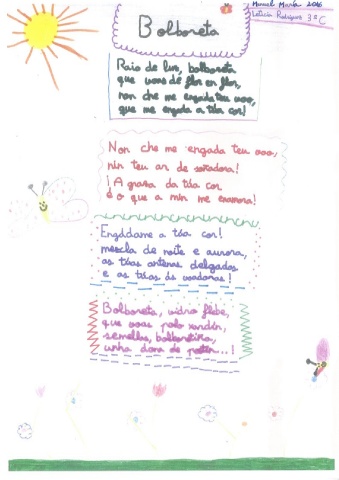 Manuel María 2016
Leticia Rodríguez 3ºC
Bolboreta
Raio de luz, bolboreta
que voas de flor en flor,
non che me engada teu voo,
que me engada a túa cor!
Non che me engada teu voo,
nin teu ar de soñadora!
¡A graza da túa cor
é o que a min me namora!
Engádame a túa cor!
mezcla de noite e aurora,
as túas antenas delgadas
e as túas ás voadoras!
Bolboreta, vidro feble,
que voas polo xardín,
semellas, bolboretiña,
unha dona de postín...!